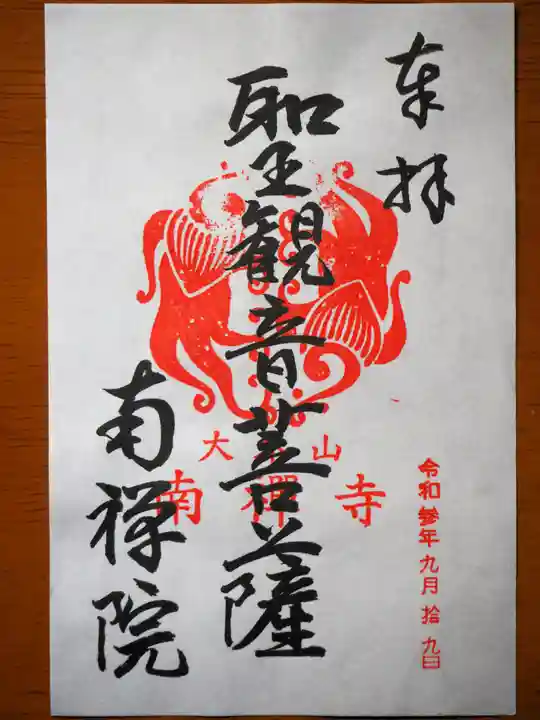 奉拝
聖観音菩薩
南禅院
大 山
南禪寺
令和參年九月拾九日